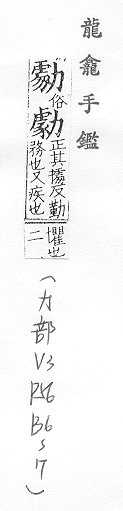 龍龕手鑑
俗勮正其據反勤
務也又疾也
懼也
二
(力部V3P56B6S7)